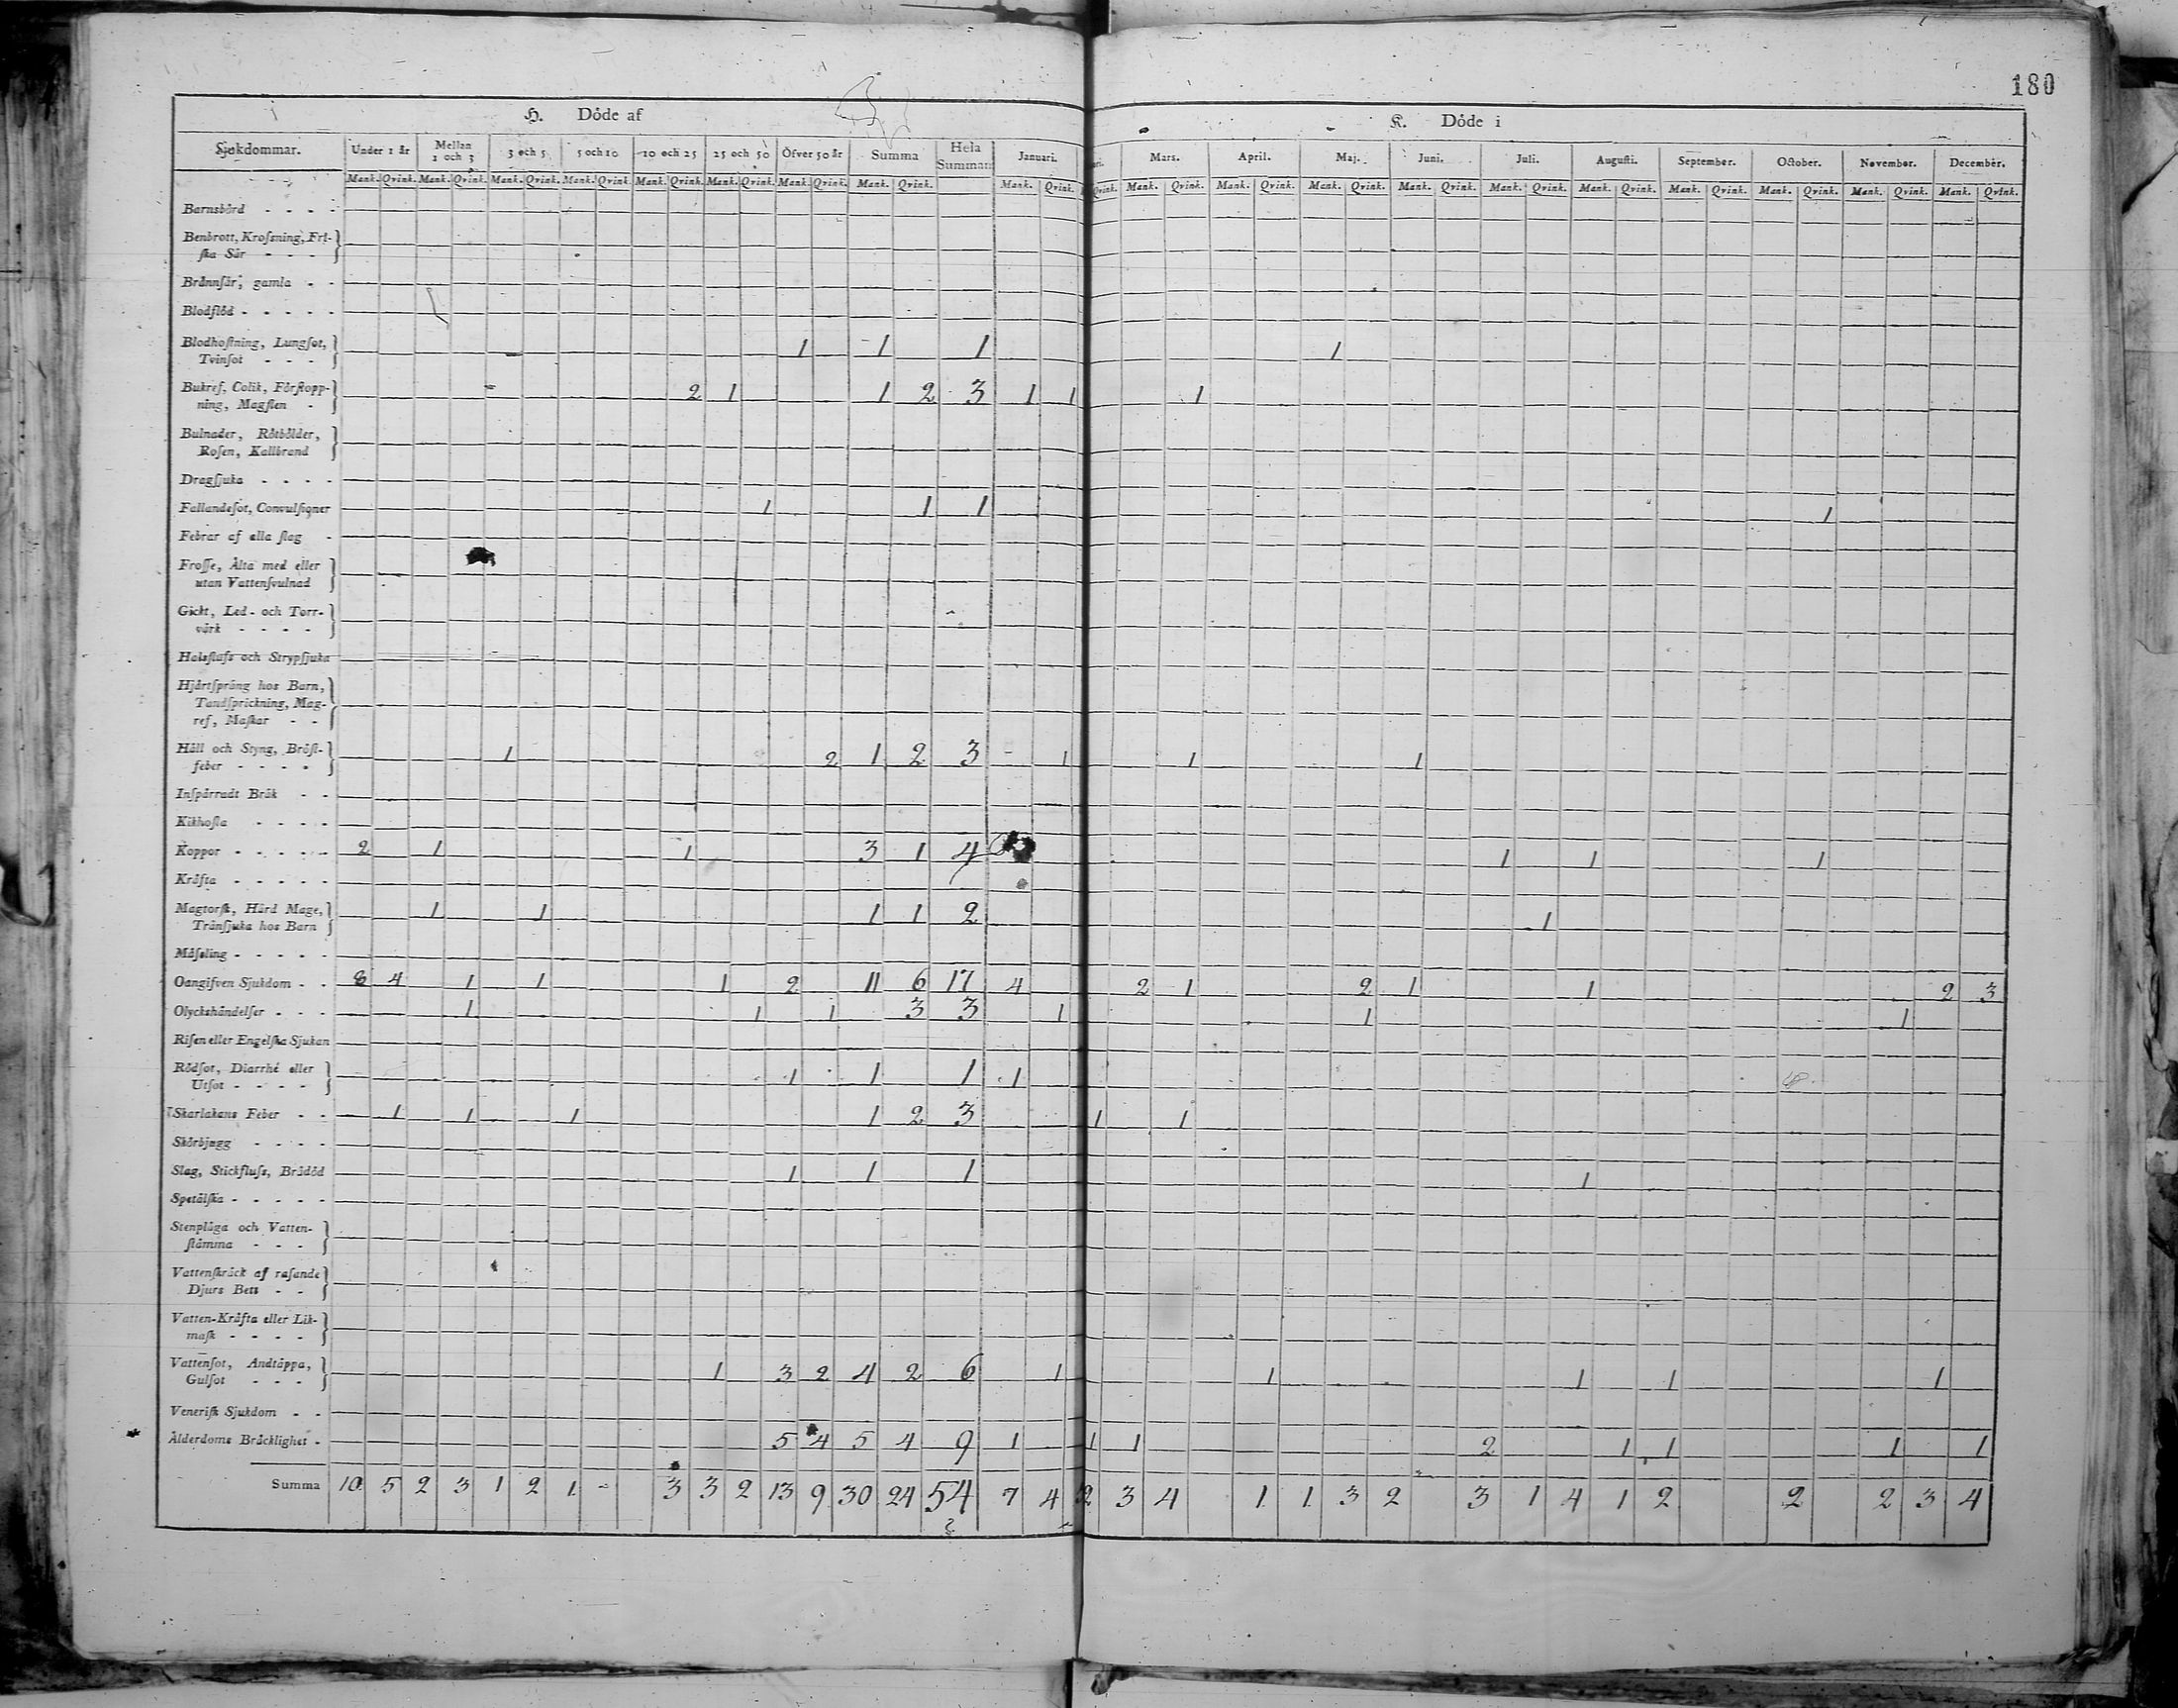 180
H. Döde af
K. Döde i
Sjukdommar. Under 1 år Mellan 1 och 3 3 och 5 5 och 10 10 och 25 25 och 50 Öfver 50 år Summa Hela Summan Januari. ari. Mars. April. Maj. Juni. Juli. Augusti. September. October. November. December.
Mank. Qvink. Mank. Qvink. Mank. Qvink. Mank. Qvink. Mank. Qvink. Mank. Qvink. Mank. Qvink. Mank. Qvink. Mank. Qvink. Qvink. Mank. Qvink. Mank. Qvink. Mank. Qvink. Mank. Qvink. Mank. Qvink. Mank. Qvink. Mank. Qvink. Mank. Qvink. Mank. Qvink. Mank. Qvink.
Barnsbörd - - - -
Benbrott, Krossning, Fri-
ska Sår - - - -
Brännsår, gamla - -
Blodflöd - - - - -
Blodhostning, Lungsot,
Tvinsot - - - 1 1 1 1
Bukref, Colik, Förstopp-
ning, Magsten - 2 1 1 2 3 1 1 1
Bulnader, Rötbölder,
Rosen, Kallbrand
Dragsjuka - - - -
Fallandesot, Convulsioner 1 1 1 1
Febrar af alla slag -
Frosse, Älta med eller
utan Vattensvulnad
Gickt, Led- och Torr-
värk - - - -
Halsflufs och Strypsjuka
Hjärtspräng hos Barn,
Tandsprickning, Mag-
ref, Maskar - -
Håll och Styng, Bröst-
feber - - - - 1 2 1 2 3 - 1 1 1
Inspärradt Bråk - -
Kikhosta - - - -
Koppor - - - - - 2 1 1 3 1 4 1 1 1
Kräfta - - - - -
Magtorsk, Hård Mage,
Tränsjuka hos Barn 1 1 1 1 2 1
Mäsling - - - - -
Oangifven Sjukdom - - 8 4 1 1 1 2 11 6 17 4 2 1 2 1 1 2 3
Olyckshändelser - - - 1 1 1 3 3 1 1 1
Risen eller Engelska Sjukan
Rödsot, Diarrhé eller
Utsot - - - - 1 1 1 1
Skarlakans Feber - - 1 1 1 1 2 3 1 1
Skörbjugg - - - -
Slag, Stickflufs, Brådöd 1 1 1 1
Spetälska - - - - -
Stenplåga och Vatten-
stämma - - -
Vattenskräck af rasande
Djurs Bett - -
Vatten-Kräfta eller Lik-
mask - - - -
Vattensot, Andtäppa,
Gulsot - - - 1 3 2 4 2 6 1 1 1 1 1
Venerisk Sjukdom - -
Ålderdoms Bräcklighet - 5 4 5 4 9 1 1 1 2 1 1 1 1
Summa 10 5 2 3 1 2 1 - 3 3 2 13 9 30 24 54 7 4 2 3 4 1 1 3 2 3 1 4 1 2 2 2 3 4